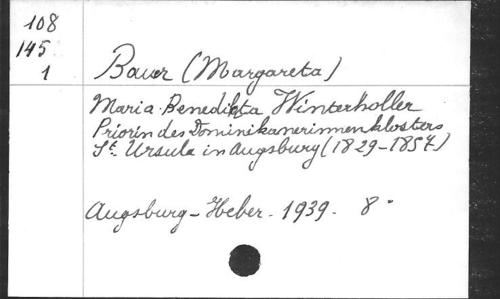 108
145
1
Bauer (Margareta)
Maria Benedikta Winterholler
Priorin des Dominikanerinnenklosters
St. Ursula in Augsburg (1829-1857)
Augsburg - Heber. 1939. 8°